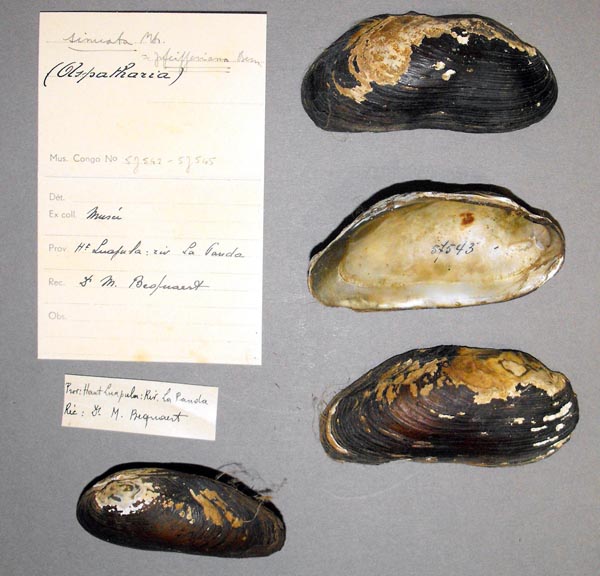 sinuata Mts.
= pfeifferiana Bern
(Aspatharia)
Mus. Congo No 57542 - 57545
Dét.
Ex coll. Musée
Prov. Ht Luapula : riv La Panda
Rec. Dr M. Bequaert
Obs.
57543
Prov: Haut Luapula: Riv. La Panda
Réc: Dr. M. Bequaert